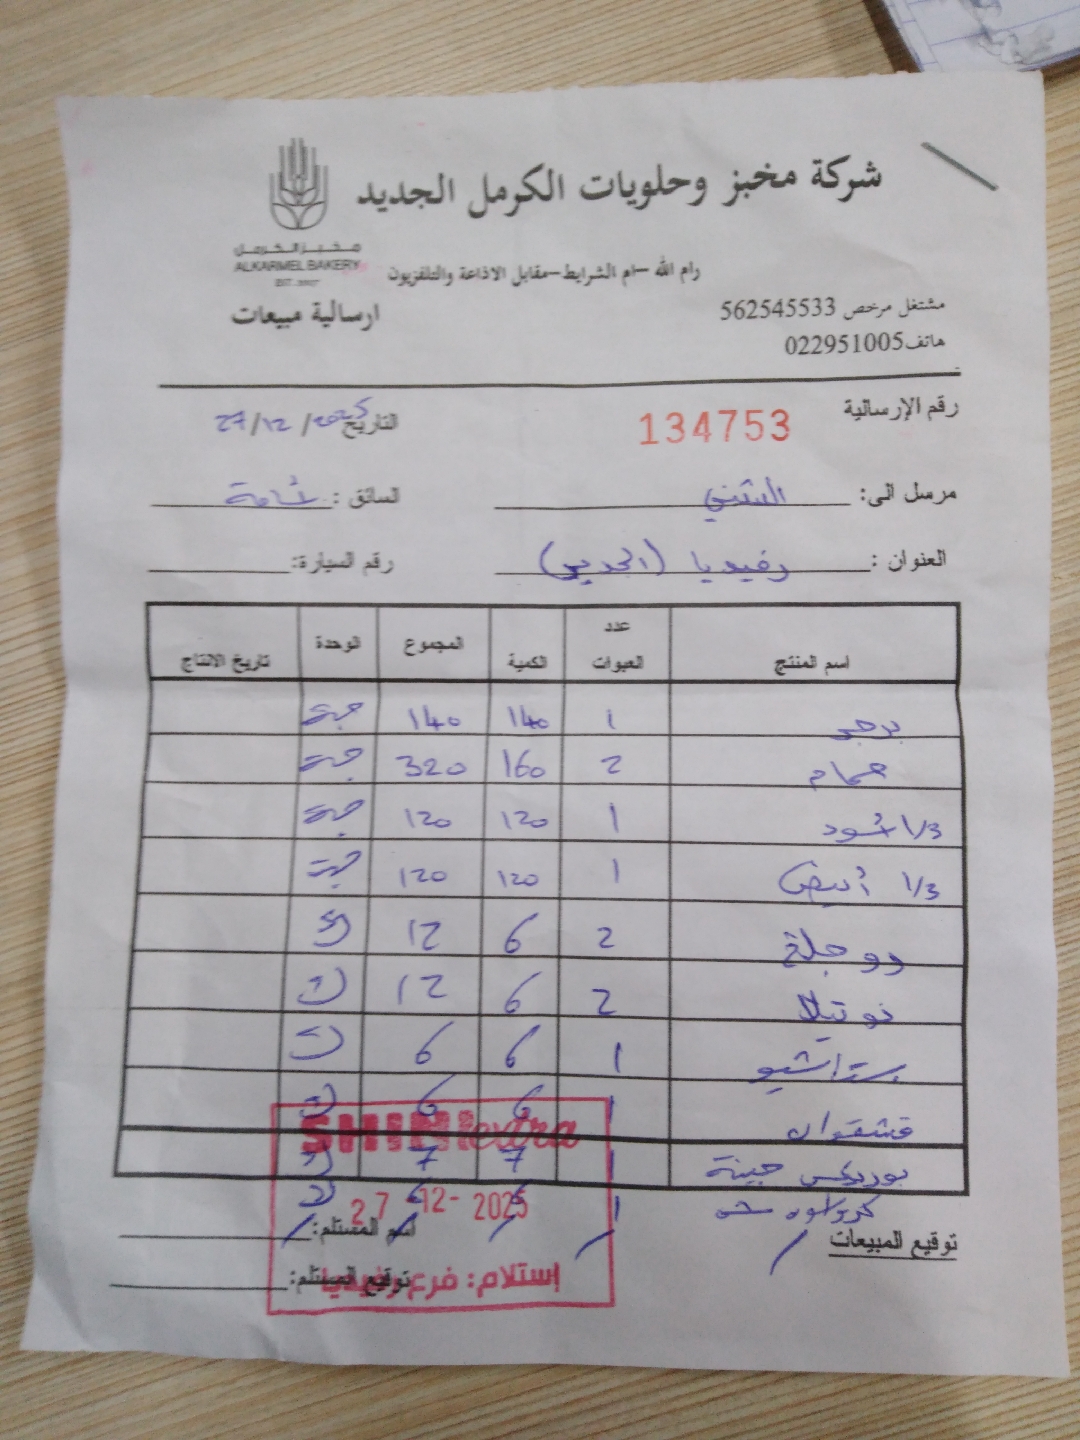 شركة مخبز وحلويات الكرمل الجديد
مخبز الكرمل
ALKARMEL BAKERY
رام الله -ام الشرايط-مقابل الاذاعة والتلفزيون
ارسالية مبيعات
مشتغل مرخص 562545533
هاتف022951005
رقم الإرسالية 134753 التاريخ 27/12/2025
مرسل الى: الشني السائق :
العنوان : رفيديا (الجديد) رقم السيارة:
اسم المنتج عدد العبوات الكمية المجموع الوحدة تاريخ الانتاج
برجر 1 140 140 حبة
حمام 2 160 320 حبة
1/3 اسود 1 120 120 حبة
1/3 أبيض 1 120 120 حبة
2 6 12
نوتيلا 2 6 12
بستاشيو 1 6 6
قشقوان 1 6 6
جبينة 1 7 7
1 6
SHINI extra
27-12-2025
إستلام: فرع رفيديا
توقيع المبيعات اسم المستلم:
توقيع المستلم: